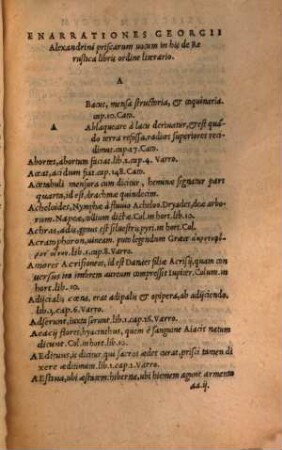 ENARRATIONES GEORGII
Alexandrini priscarum uocum in his de Re
rustica libris ordine literario.
A
Bacus, mensa structoria, & coquinaria.
cap.10. Cato.
A Ablaqueare à lacu deriuatur, & est quã
do terra refossa, radices superiores reci
dimus. cap.27. Cato.
Abortet, abortum faciat. lib.1. cap.4. Varro.
Aceat, acidum fiat. cap.148. Cato.
Acetabuli mensura cum dicitur, heminæ signatur pars
quarta, id est, drachmæ quindecim.
Acheloides, Nymphæ à fluuio Acheloo. Dryades, deæ arbo
rum. Napææ, uallium dictæ. Col. in hort. lib. 10.
Achras, adis, genus est siluestru pyri. in hort. Col.
Acratophoron, uineam. puto legendum Græcè
uten. lib.1. cap.8. Varro.
Amores Acrisioneos, id est Danaes filiæ Acrisij, quam con
uersus in imbrem aureum compressit Iupiter. Colum. in
hort. lib. 10.
Adijcialis cæna, erat adipalis & opipera, ab adijciendo,
lib.3. cap.6. Varro.
Adserunt, iuxta serunt. lib.1. cap.16. Varro.
Aeacij flores, hyacinthus, quem è sanguine Aiacis natum
dicunt. Col. in hort. lib. 10.
AEdituus, is dicitur, qui sacras ædes curat. prisci tamen di
xere æditimum. lib.1. cap.1. Varro.
AEstiua, ubi æstuem: hiberna, ubi hiemem agunt armenta
aa.ij.